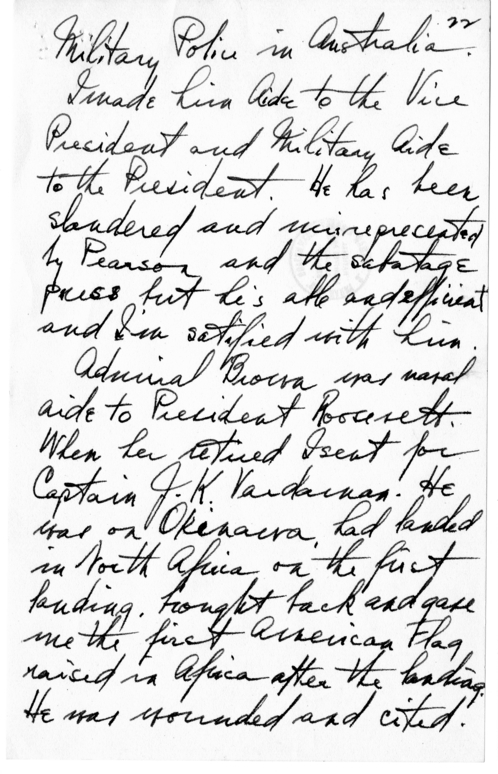 22
Military Police in Australia.
I made him Aide to the Vice
President and Military Aide
to the President. He has been
slandered and misrepresented
by Pearson and the sabatage
press but he's able and efficient
and I'm satified with him.
Admiral Brown was naval
aide to President Roosevelt.
When he retired I sent for
Captain J. K. Vardaman. He
was on Okinawa, had landed
in North Africa on the first
landing. brought back and gave
me the first American Flag
raised in Africa after the landing.
He was wounded and cited.